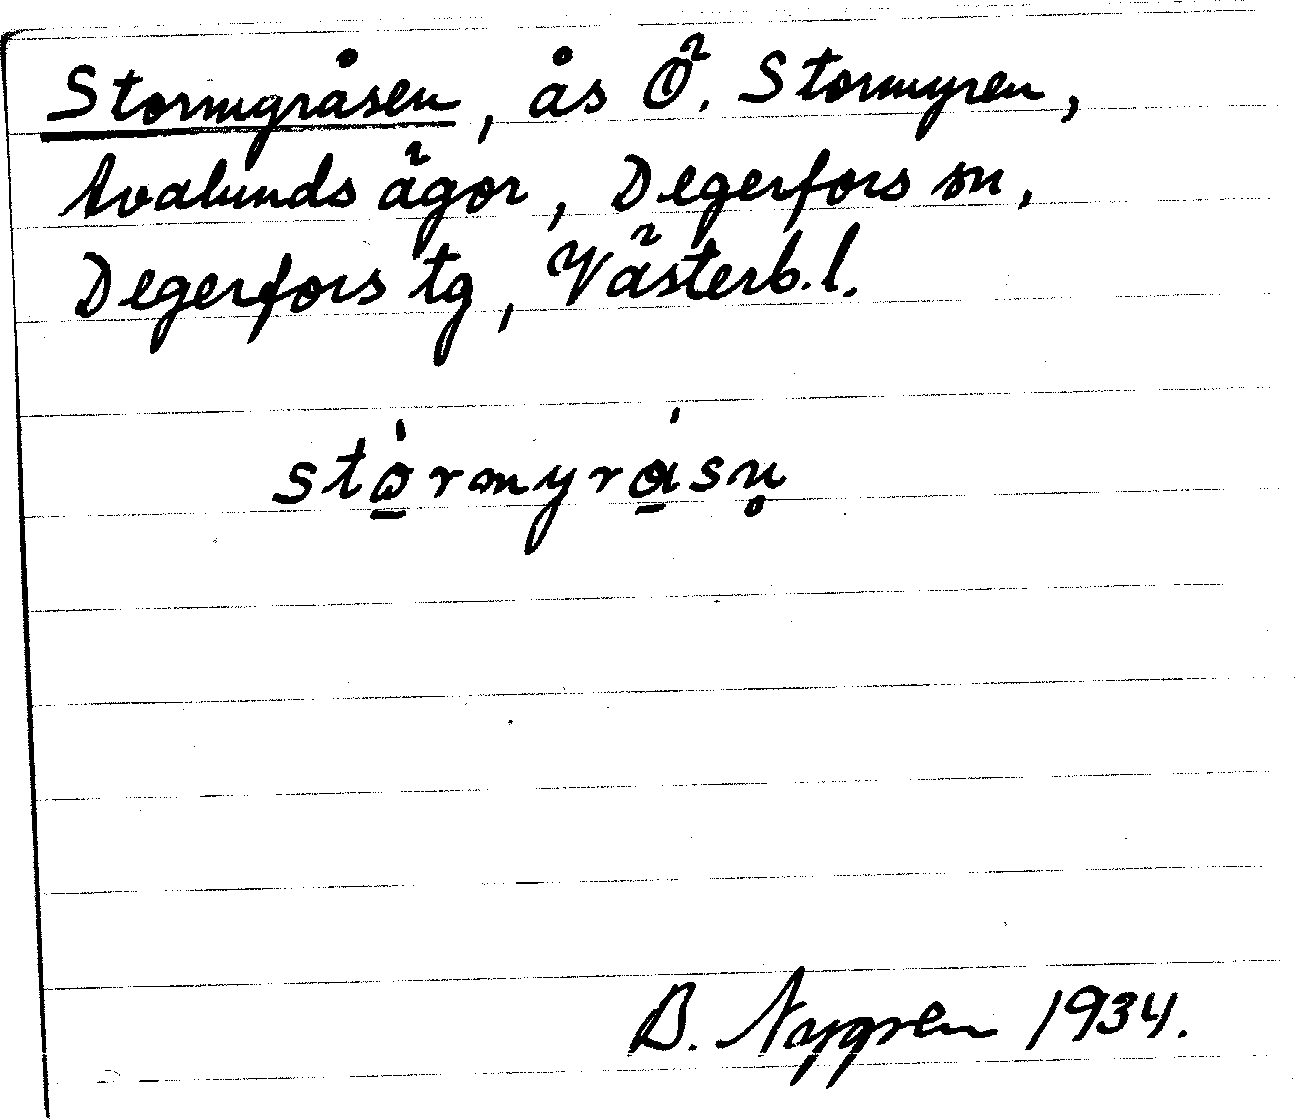 Stormyråsen, ås Ö. Stormyren,
Avalunds ägor, Degerfors sn,
Degerfors tg, Västerb.l.
stòrmyråsn̥
B. Nygren 1934.